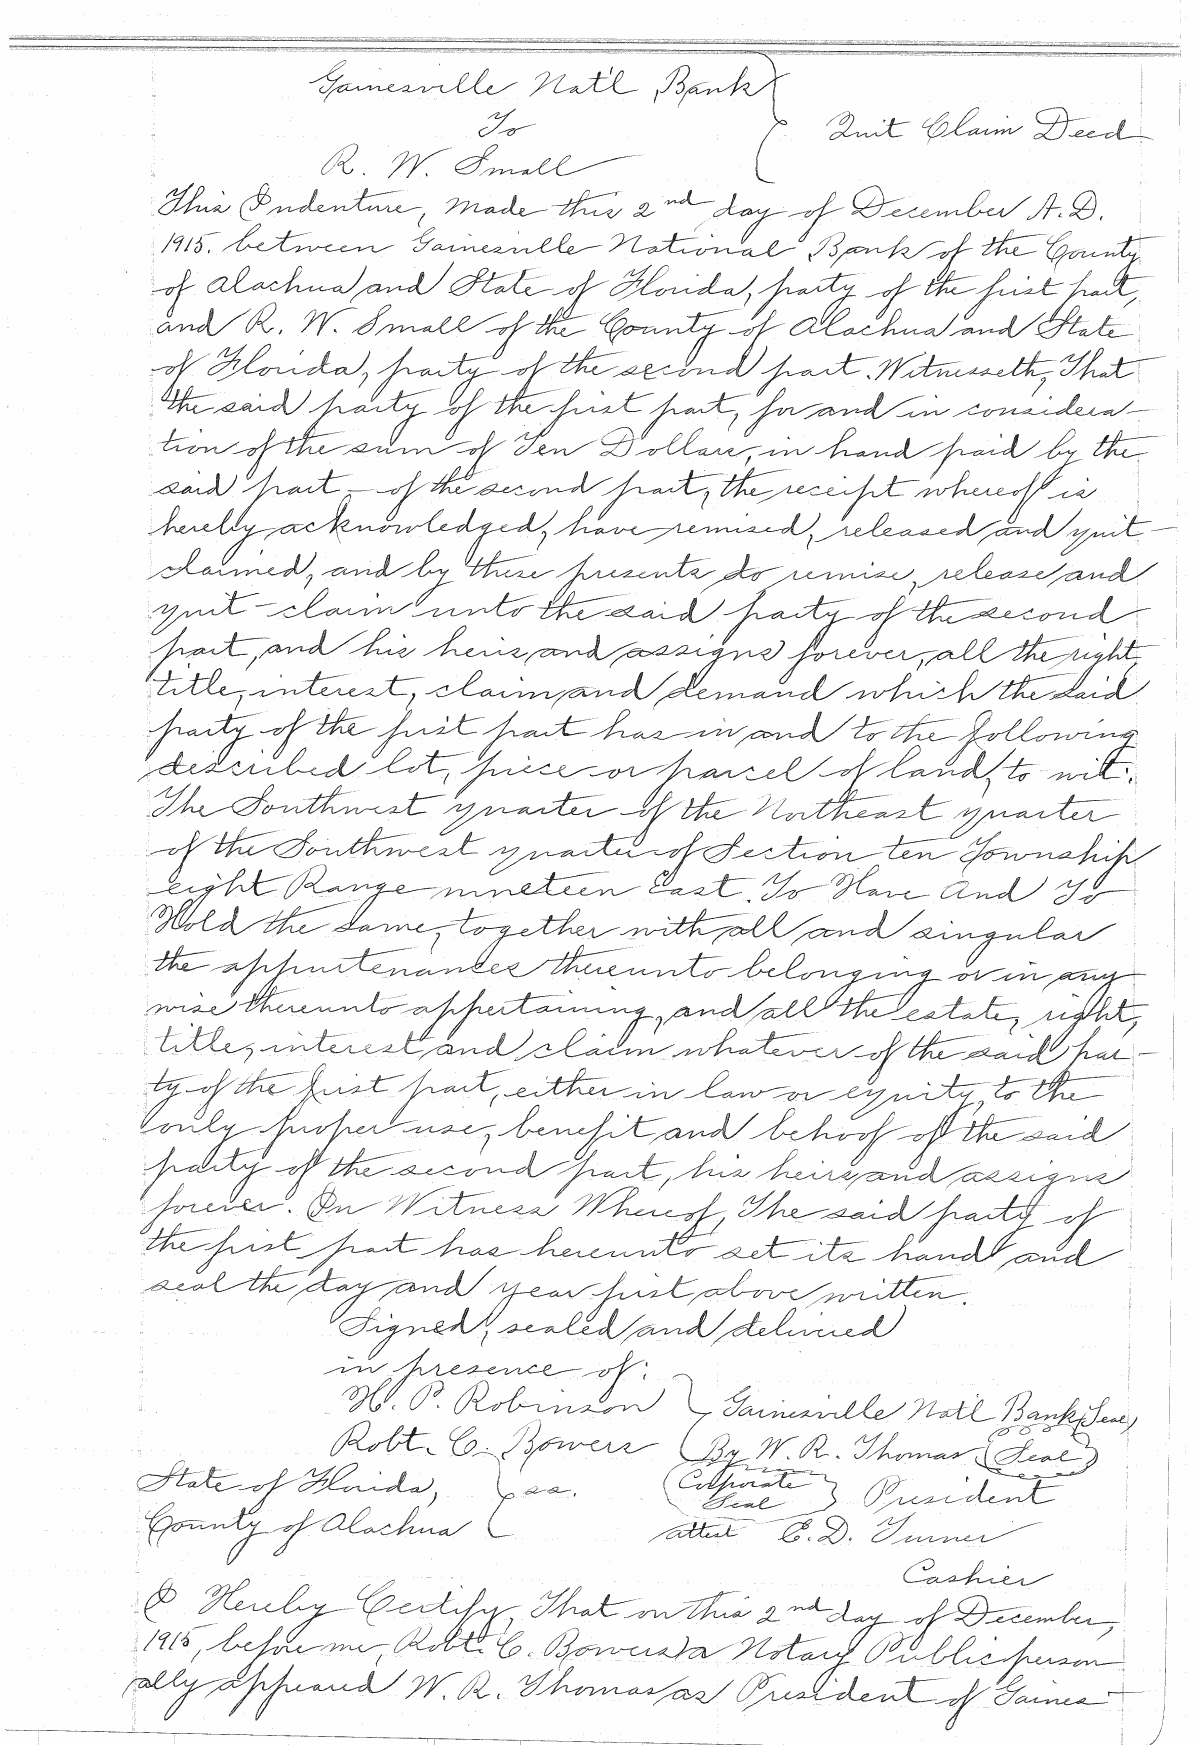 Gainesville Nat'l Bank
To
Quit Claim Deed
R. W. Small
This Indenture, Made this 2nd day of December A. D.
1915. between Gainesville National Bank of the County
of Alachua and State of Florida, party of the first part,
and R. W. Small of the County of Alachua and State
of Florida, party of the second part. Witnesseth, That
the said party of the first part, for and in considera-
tion of the sum of Ten Dollars, in hand paid by the
said part - of the second part, the receipt whereof is
hereby acknowledged, have remised, released and quit-
claimed, and by these presents do remise, release and
quit-claim unto the said party of the second
part, and his heirs and assigns forever, all the right,
title, interest, claim and demand which the said
party of the first part has in and to the following
described lot, piece or parcel of land, to wit:
The Southwest quarter of the Northeast quarter
of the Southwest quarter of Section ten Township
eight Range nineteen East. To Have And To
Hold the same, together with all and singular
the appurtenances thereunto belonging or in any
wise thereunto appertaining, and all the estate, right,
title, interest and claim whatever of the said par-
ty of the first part, either in law or equity, to the
only proper use, benefit and behoof of the said
party of the second part, his heirs and assigns
forever. In Witness Whereof, The said party of
the first part has hereunto set its hand and
seal the day and year first above written.
Signed, sealed and delivered
in presence of:
H. P. Robinson Gainesville Nat'l Bank (Seal)
Robt. C. Bowers By W. R. Thomas (Seal)
State of Florida, ss. Corporate Seal President
County of Alachua attest E. D. Turner
Cashier
I Hereby Certify, That on this 2nd day of December,
1915, before me, Robt. C. Bowers a Notary Public person
ally appeared W. R. Thomas as President of Gaines-